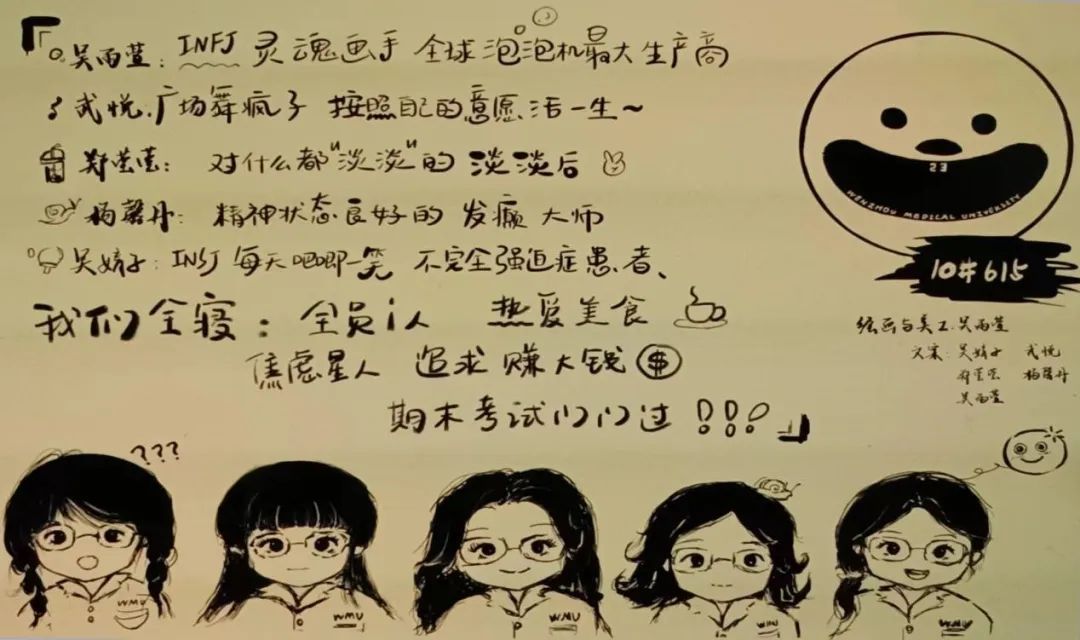 『吴雨萱：INFJ 灵魂画手 全球泡泡机最大生产商
武悦：广场舞疯子 按照自己的意愿活一生~
郑莹莹：对什么都"淡淡"的 淡淡后
杨馨丹：精神状态良好的 发癫大师
吴婧子：INSJ 每天吧唧一笑 不完全强迫症患者、
我们全寝：全员i人 热爱美食
焦虑星人 追求赚大钱 $
期末考试门门过 !!!』
23
WENZHOU MEDICAL UNIVERSITY
10#615
绘画与美工：吴雨萱
文案：吴婧子 武悦
郑莹莹 杨馨丹
吴雨萱
???
WMU
WMU
WMU
WMU